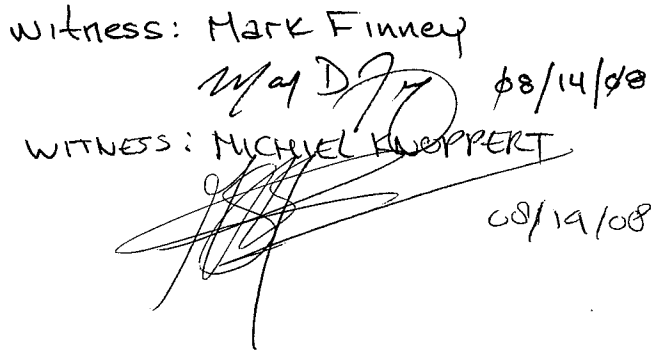 Witness: Mark Finney
08/14/08
WITNESS: MICHIEL KNOPPERT
08/19/08